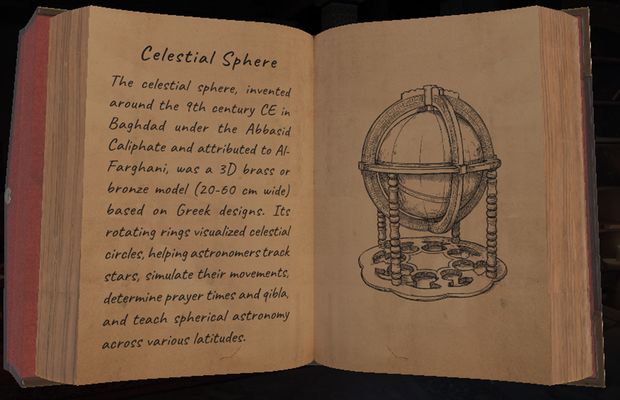 Celestial Sphere
The celestial sphere, invented
around the 9th century CE in
Baghdad under the Abbasid
Caliphate and attributed to Al-
Farghani, was a 3D brass or
bronze model (20-60 cm wide)
based on Greek designs. Its
rotating rings visualized celestial
circles, helping astronomers track
stars, simulate their movements,
determine prayer times and qibla,
and teach spherical astronomy
across various latitudes.